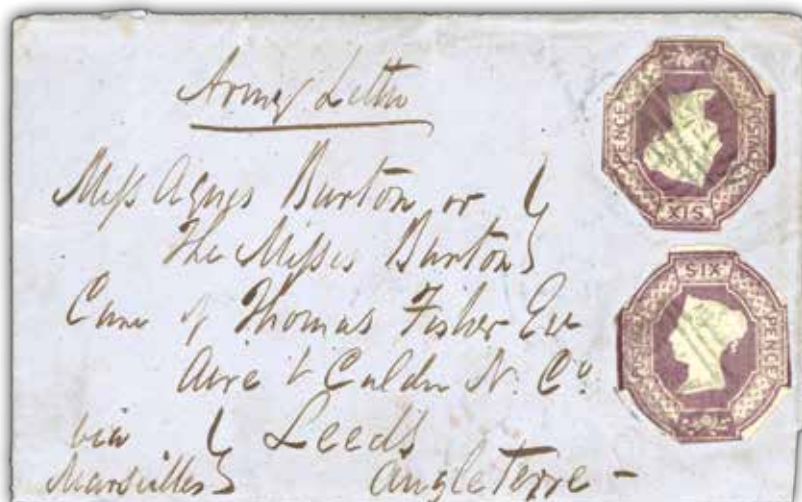 Army Letter
Miss Agnes Burton or
The Misses Burton
Care of Thomas Fisher Esq
Aire & Calder N. Co
via Leeds
Marseilles Angleterre -
PENCE POSTAGE SIX
SIX POSTAGE PENCE